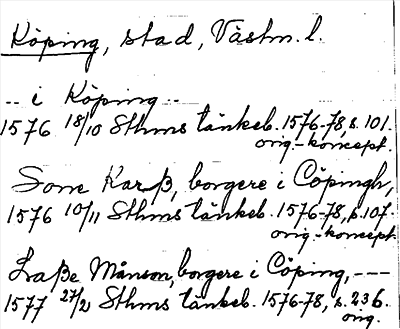 Köping, stad, Västm. l.
-- i Köping --
1576 18/10 Sthms tänkeb. 1576-78, s. 101.
orig.-koncept.
Sone Kar ß, borgere i Cöpingh,
1576 10/11 Sthms tänkeb. 1576-78, s. 107.
orig.-koncept
Laße Månson, borgere i Cöping, ---
1577 27/2 Sthms tänkeb. 1576-78, s. 236.
orig.